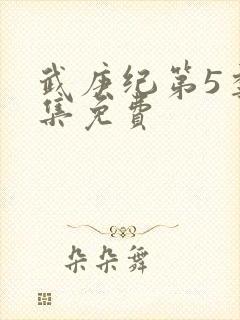 武庚纪第5季
集免费
朵朵舞